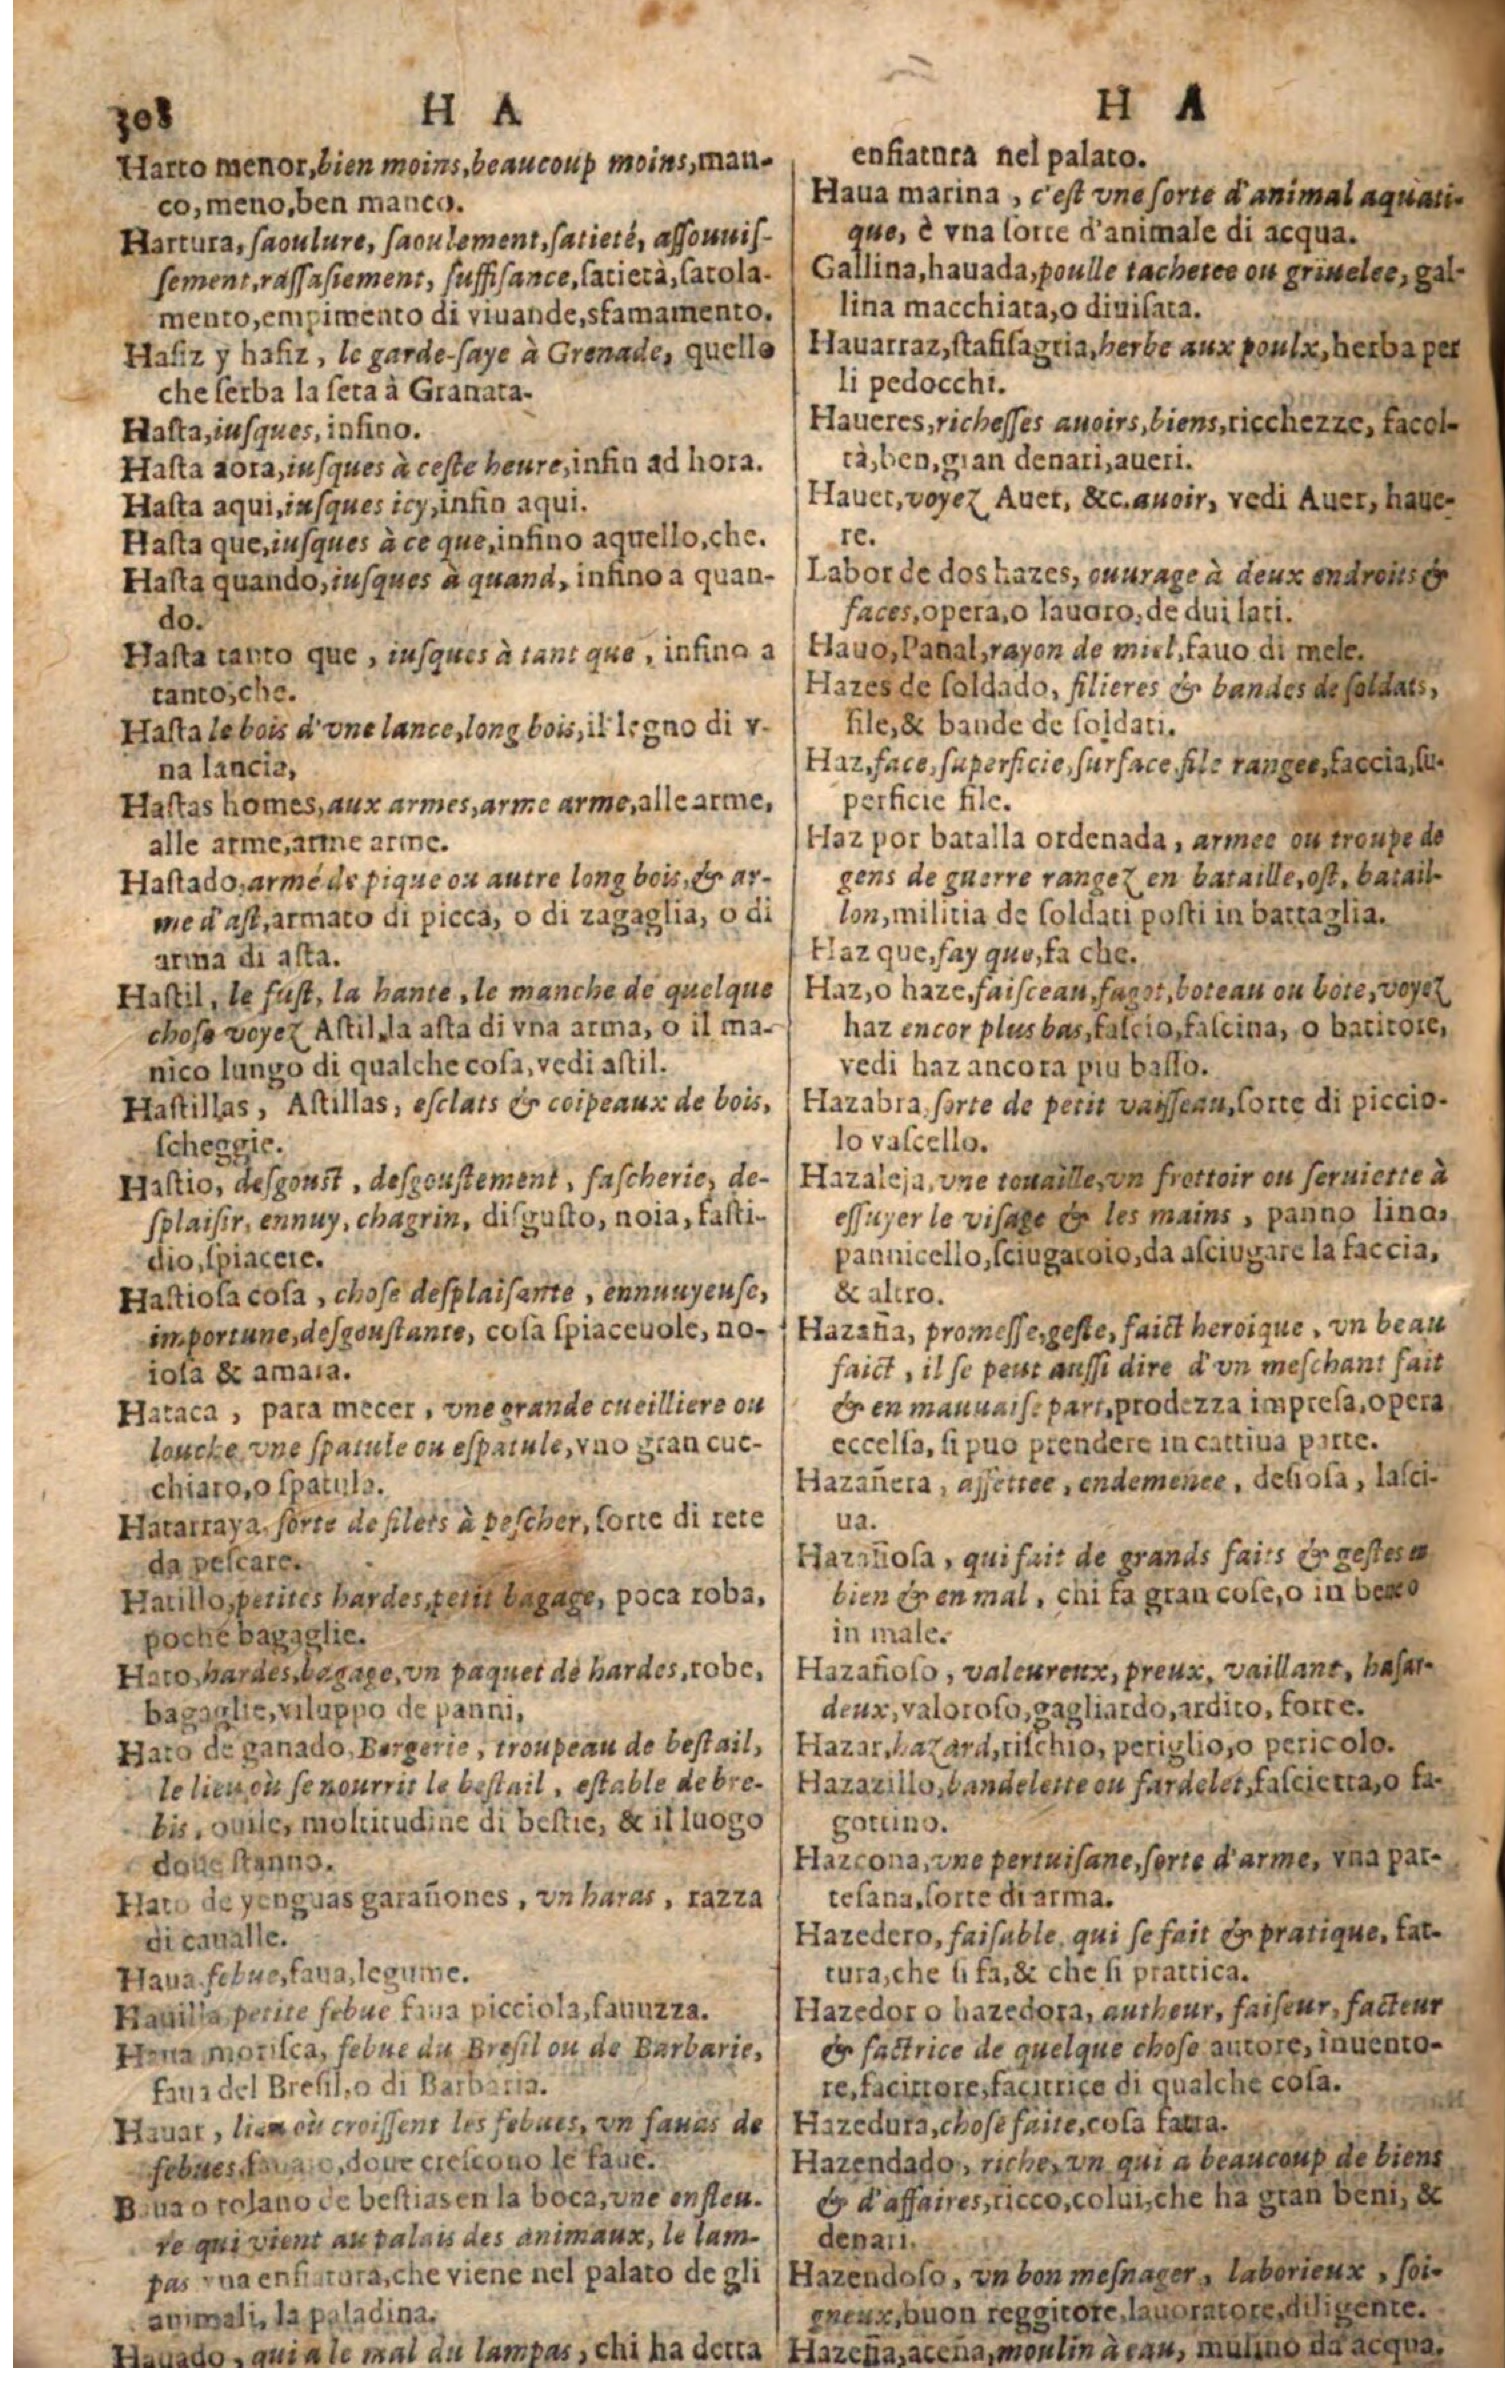 308
H A
Harto menor, bien moins, beaucoup moins, man-
co, meno, ben manco.
Hartura, ſaoulure, ſaoulement, ſatieté, aſſouuiſ-
ſement, raſſaſiement, ſuffiſance, ſatietà, ſatola-
mento, empimento di viuande, sfamamento.
Hafiz y hafiz, le garde-ſaye à Grenade, quello
che ſerba la ſeta à Granata.
Haſta, iuſques, infino.
Haſta aora, iuſques à ceſte heure, infin ad hora.
Haſta aqui, iuſques icy, infin aqui.
Haſta que, iuſques à ce que, infino aquello, che.
Haſta quando, iuſques à quand, infino a quan-
do.
Haſta tanto que, iuſques à tant que, infino a
tanto, che.
Haſta le bois d'vne lance, long bois, il legno di v-
na lancia,
Haſtas homes, aux armes, arme arme, alle arme,
alle arme, arme arme.
Haſtado, armé de pique ou autre long bois, & ar-
me d'aſt, armato di picca, o di zagaglia, o di
arma di aſta.
Haſtil, le fuſt, la hante, le manche de quelque
choſe voyez Aſtil, la aſta di vna arma, o il ma-
nico lungo di qualche coſa, vedi aſtil.
Haſtillas, Aſtillas, eſclats & coipeaux de bois,
ſcheggie.
Haſtio, deſgouſt, deſgouſtement, faſcherie, de-
ſplaiſir, ennuy, chagrin, diſguſto, noia, faſti-
dio, ſpiacere.
Haſtioſa coſa, choſe deſplaiſante, ennuuyeuſe,
importune, deſgouſtante, coſa ſpiaceuole, no-
ioſa & amara.
Hataca, para mecer, vne grande cueilliere ou
louche vne ſpatule ou eſpatule, vno gran cuc-
chiaro, o ſpatula.
Hatarraya, ſorte de filets à peſcher, ſorte di rete
da peſcare.
Hatillo, petites hardes, petit bagage, poca roba,
poche bagaglie.
Hato, hardes, bagage, vn paquet de hardes, robe,
bagaglie, viluppo de panni,
Hato de ganado, Bergerie, troupeau de beſtail,
le lieu où ſe nourrit le beſtail, eſtable de bre-
bis, ouile, moltitudine di beſtie, & il luogo
doue ſtanno.
Hato de yenguas garañones, vn haras, razza
di caualle.
Haua febue, faua, legume.
Hauilla petite febue faua picciola, fauuzza.
Haua moriſca, febue du Breſil ou de Barbarie,
faua del Breſil, o di Barbaria.
Hauar, lieu où croiſſent les febues, vn fauas de
febues, , doue creſcono le faue.
Haua o tolano de beſtias en la boca, vne enfleu-
re qui vient au palais des animaux, le lam-
pas vna enfiatura, che viene nel palato de gli
animali, la paladina.
Hauado, qui a le mal du lampas, chi ha detta
H A
enfiatura nel palato.
Haua marina, c'eſt vne ſorte d'animal aquati-
que, è vna ſorte d'animale di acqua.
Gallina, hauada, poulle tachetee ou griuelee, gal-
lina macchiata, o diuiſata.
Hauarraz, ſtafiſagria, herbe aux poulx, herba per
li pedocchi.
Haueres, richeſſes auoirs, biens, ricchezze, facol-
tà, ben, gran denari, aueri.
Hauer, voyez Auer, &c. auoir, vedi Auer, haue-
re.
Labor de dos hazes, ouurage à deux endroits &
faces, opera, o lauoro, de dui lati.
Hauo, Panal, rayon de miel, fauo di mele.
Hazes de ſoldado, filieres & bandes de ſoldats,
file, & bande de ſoldati.
Haz, face, ſuperficie, ſurface, file rangee, faccia, ſu-
perficie file.
Haz por batalla ordenada, armee ou troupe de
gens de guerre rangez en bataille, oſt, batail-
lon, militia de ſoldati poſti in battaglia.
Haz que, fay que, fa che.
Haz, o haze, faiſceau, fagot, boteau ou bote, voyez
haz encor plus bas, faſcio, faſcina, o batitore,
vedi haz ancora piu baſſo.
Hazabra, ſorte de petit vaiſſeau, ſorte di piccio-
lo vaſcello.
Hazaleja, vne touaille, vn frottoir ou ſeruiette à
eſſuyer le viſage & les mains, panno lino,
pannicello, ſciugatoio, da aſciugare la faccia,
& altro.
Hazaña, promeſſe, geſte, faict heroique, vn beau
faict, il ſe peut auſſi dire d'vn meſchant fait
& en mauuaiſe part, prodezza impreſa, opera
eccelſa, ſi puo prendere in cattiua parte.
Hazañera, affettee, endemenee, deſioſa, laſci-
ua.
Hazañoſa, qui fait de grands faits & geſtes en
bien & en mal, chi fa gran coſe, o in bene o
in male.
Hazañoſo, valeureux, preux, vaillant, haſar-
deux, valoroſo, gagliardo, ardito, forte.
Hazar, hazard, riſchio, periglio, o pericolo.
Hazazillo, bandelette ou fardelet, faſcietta, o fa-
gottino.
Hazcona, vne pertuiſane, ſorte d'arme, vna par-
teſana, ſorte di arma.
Hazedero, faiſable, qui ſe fait & pratique, fat-
tura, che ſi fa, & che ſi prattica.
Hazedor o hazedora, autheur, faiſeur, facteur
& factrice de quelque choſe autore, inuento-
re, facittore, facitrice di qualche coſa.
Hazedura, choſe faite, coſa fatta.
Hazendado, riche, vn qui a beaucoup de biens
& d'affaires, ricco, colui, che ha gran beni, &
denari.
Hazendoſo, vn bon meſnager, laborieux, ſoi-
gneux, buon reggitore, lauoratore, diligente.
Hazeña, aceña, moulin à eau, mulino da acqua.